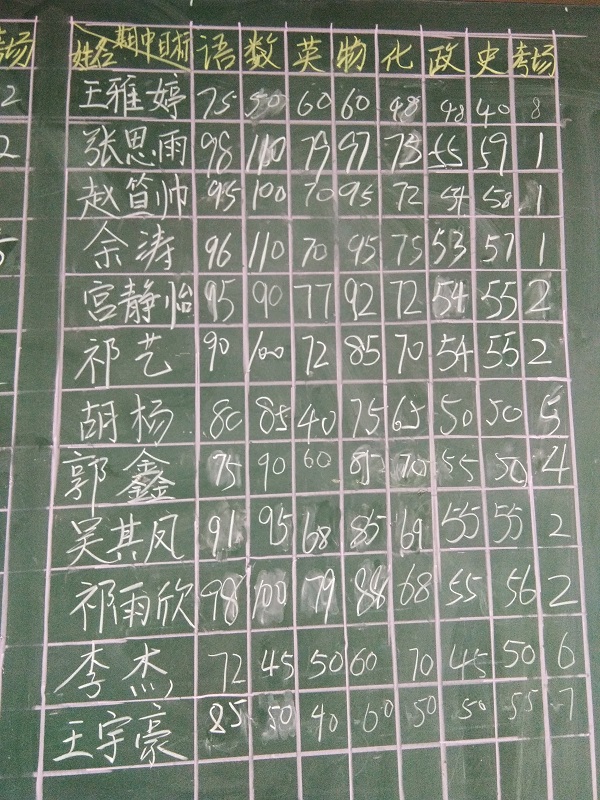 考场
姓名 期中目标 语 数 英 物 化 政 史 考场
2 王雅婷 75 50 60 60 48 48 40 8
2 张思雨 98 110 79 97 75 55 59 1
赵笪帅 95 100 70 95 72 54 58 1
5 余涛 96 110 70 95 75 53 57 1
宫静怡 95 90 77 92 72 54 55 2
祁艺 90 100 72 85 70 54 55 2
胡杨 80 85 40 75 65 50 50 5
郭鑫 75 90 60 85 70 55 50 4
吴其凤 91 95 68 85 69 55 55 2
祁雨欣 98 100 79 88 68 55 56 2
李杰 72 45 50 60 70 45 50 6
王宇豪 85 50 40 60 50 50 55 7